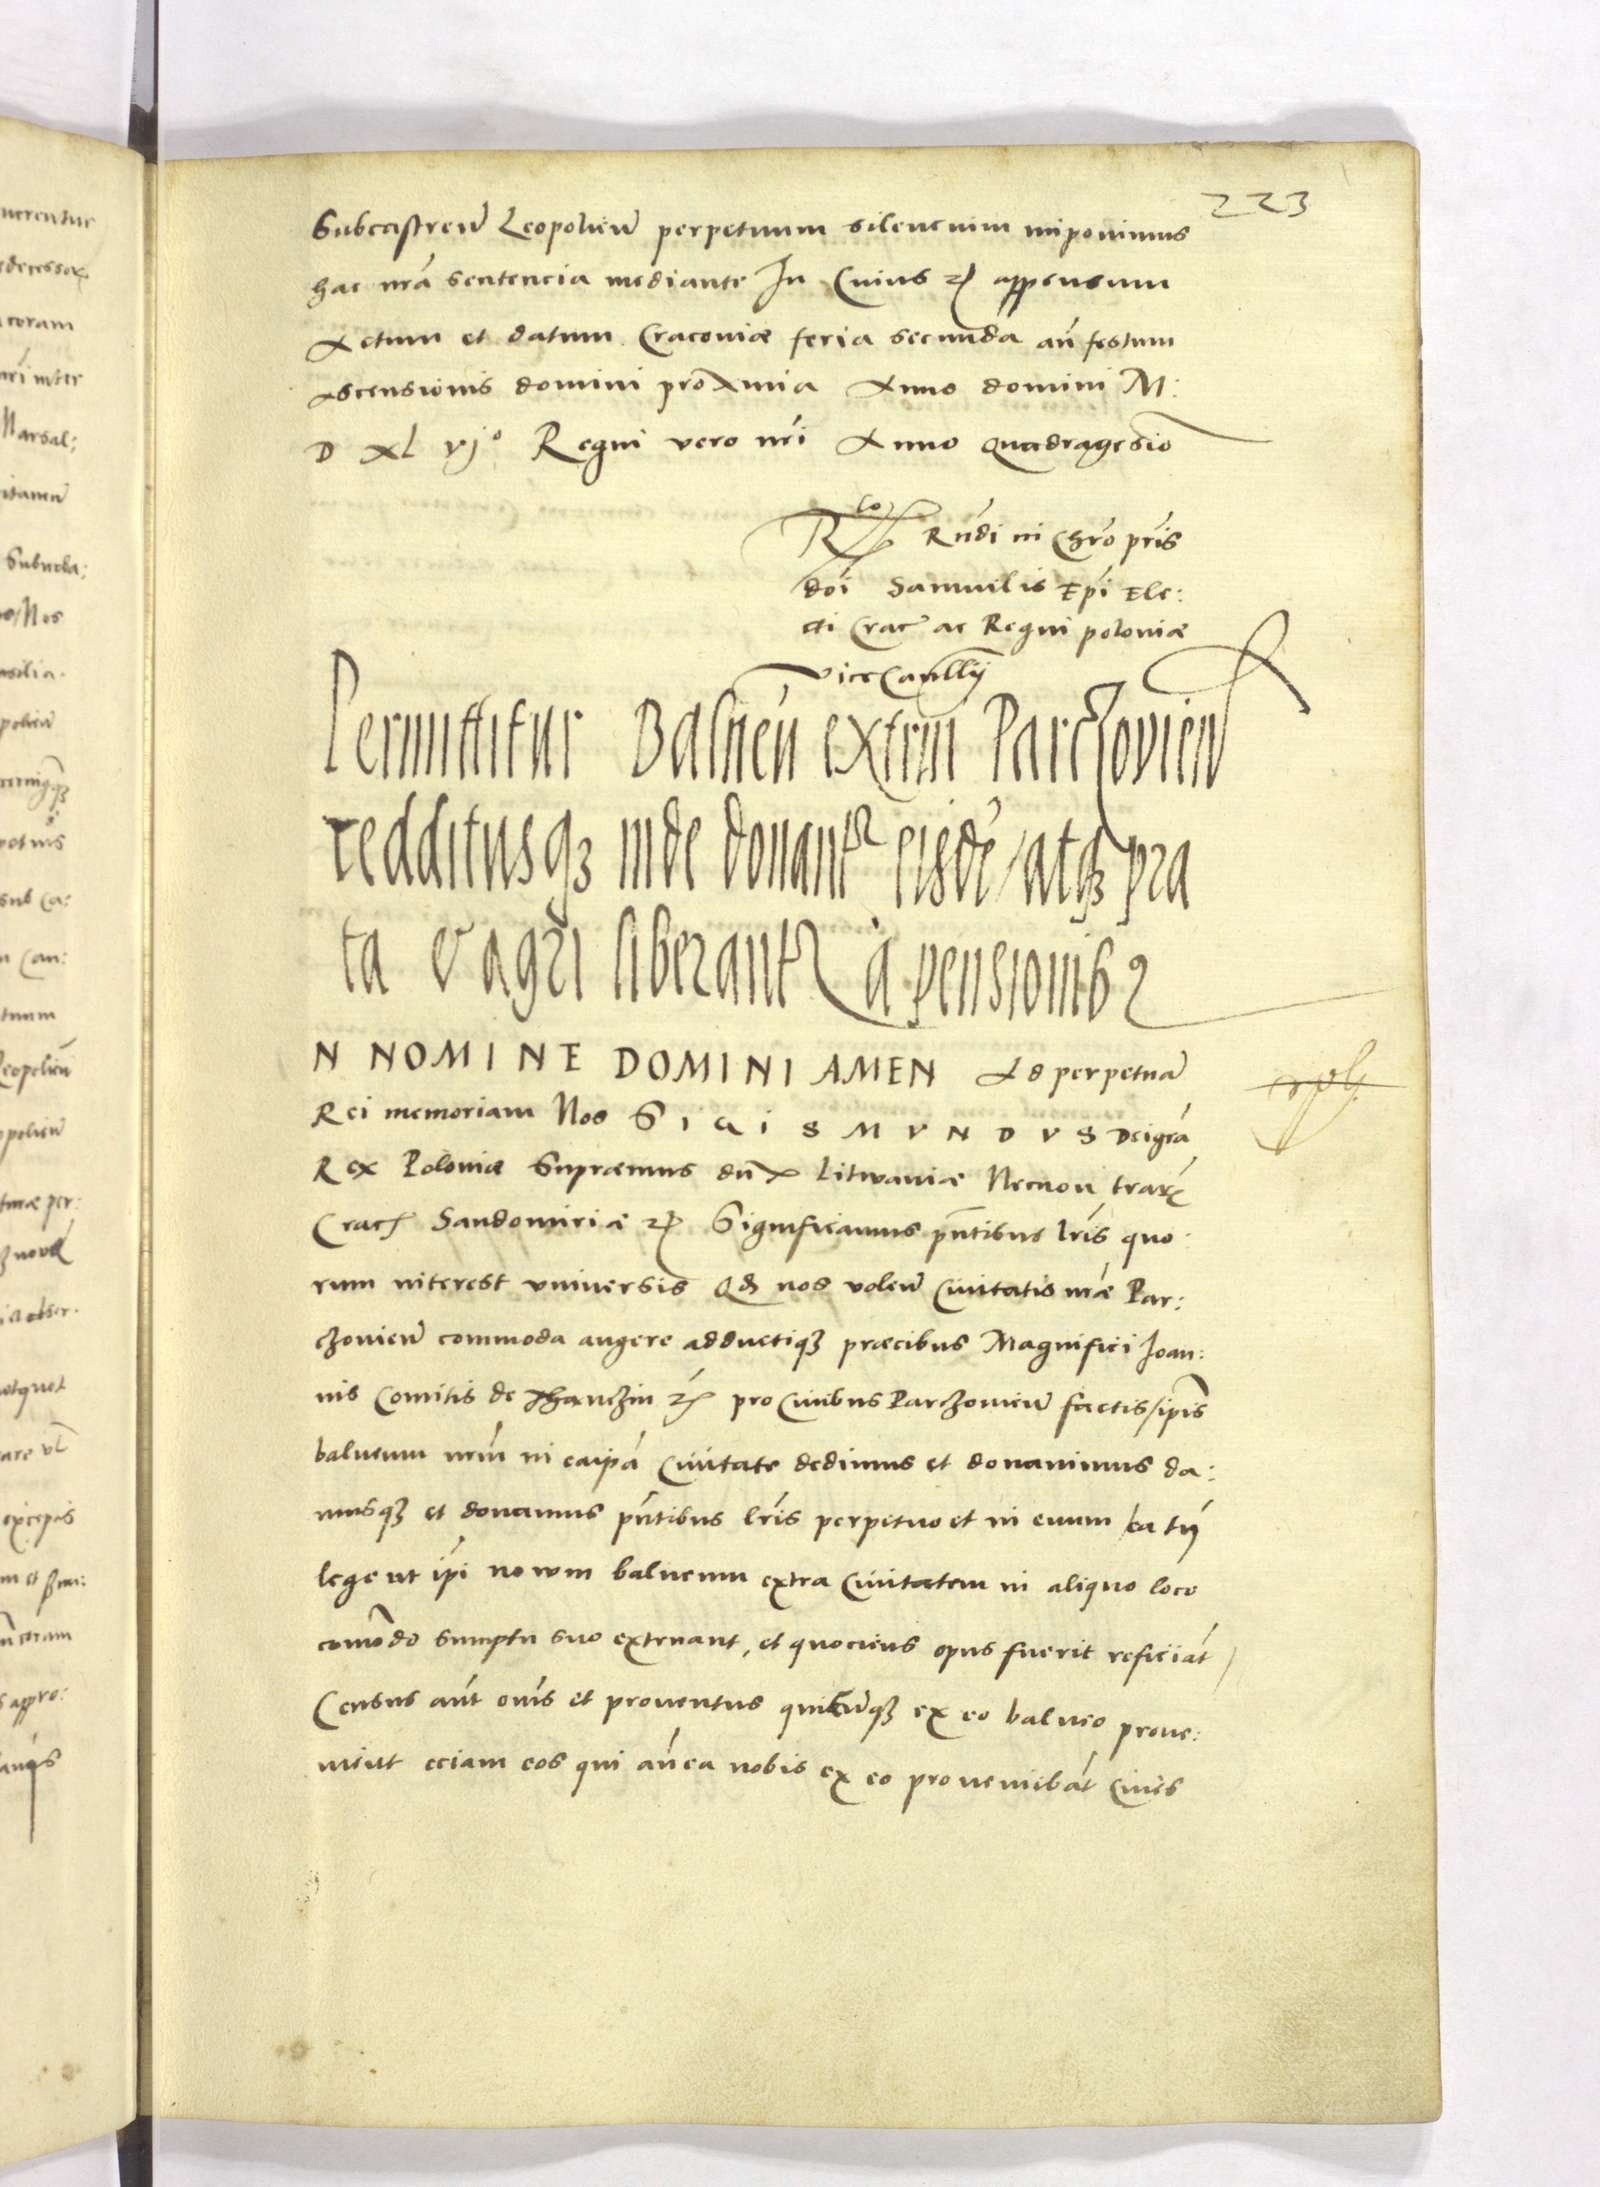 223
Subcastreñ Leopolieñ perpetuum silencium imponimus
hac nrã sentencia mediante In Cuius ꝛc appensum
Actum et datum Cracoviæ feria secunda añ festum
Ascensionis domini proxima Anno domini M:
D XL vjº Regni vero nrĩ Anno Quadragesiõ
Rlõ Rñdi in Chrõ pris
doĩ Samuilis Epĩ Ele:
cti Crac̃ ac Regni poloniæ
ViceCancllÿ
Permittitur Balneũ extrui Parczovieñ
redditusqꝫ inde donantr eisdẽ / atqꝫ pra
ta & agri liberantr à pensionibꝰ
N NOMINE DOMINI AMEN Ad perpetuã
Rei memoriam Nos SIGISMVNDVS Dei grã
Rex Poloniæ Supræmus dux Litwaniæ Necnon trarꝝ
Crac Sandomiriæ ꝛc Significamus pñtibus lrĩs quo
rum interest vniversis Qđ nos voleñ Civitatis nræ Par:
czovieñ commoda augere adductiqꝫ præcibus Magnifici Joan:
nis Comitis de Thanczin ꝛc pro Civibus Parczovieñ factis / ipĩs
balneum nrm̃ in eaipã Civitate dedimus et donavimus da:
musqꝫ et donamus pñtibus lrĩs perpetuo et in evum ea tñ
lege ut ipĩ nowm balneum extra Civitatem in aliquo loco
comõdo sumptu suo extruant, et quociens opus fuerit reficiãt /
Census aũt om̃s et proventus quicũqꝫ ex eo balneo prove:
nieñt eciam eos qui añea nobis ex eo proveniebãt Cives